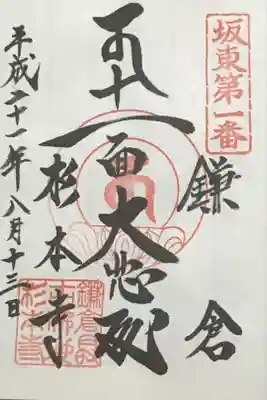 坂東第一番
鎌倉
十一面大悲殿
杉本寺
平成二十一年八月十三日
杉本寺